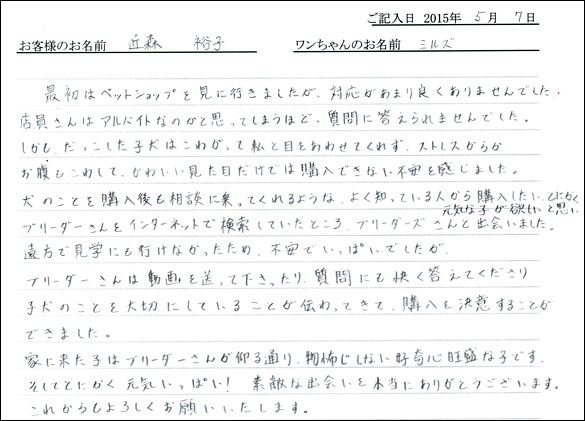 ご記入日 2015年 5月 7日
お客様のお名前 近森 裕子 ワンちゃんのお名前 ミルズ
最初はペットショップを見に行きましたが、対応があまり良くありませんでした。
店員さんはアルバイトなのかと思ってしまうほど、質問に答えられませんでした。
しかも、だっこした子犬はこわがって私と目をあわせてくれず、ストレスからか
お腹もこわして、かわいい見た目だけでは購入できない不安を感じました。
犬のことを購入後も相談に乗ってくれるような、よく知っている人から購入したい、とにかく
元気な子が欲しいと思い
ブリーダーさんをインターネットで検索していたところ、ブリーダーズさんと出会いました。
遠方で見学にも行けなかったため、不安でいっぱいでしたが、
ブリーダーさんは動画を送って下さったり、質問にも快く答えてくださり
子犬のことを大切にしていることが伝わってきて、購入を決意することが
できました。
家に来た子はブリーダーさんが仰る通り、物怖じしない好奇心旺盛な子です。
そしてとにかく元気いっぱい! 素敵な出会いを本当にありがとうございます。
これからもよろしくお願いいたします。